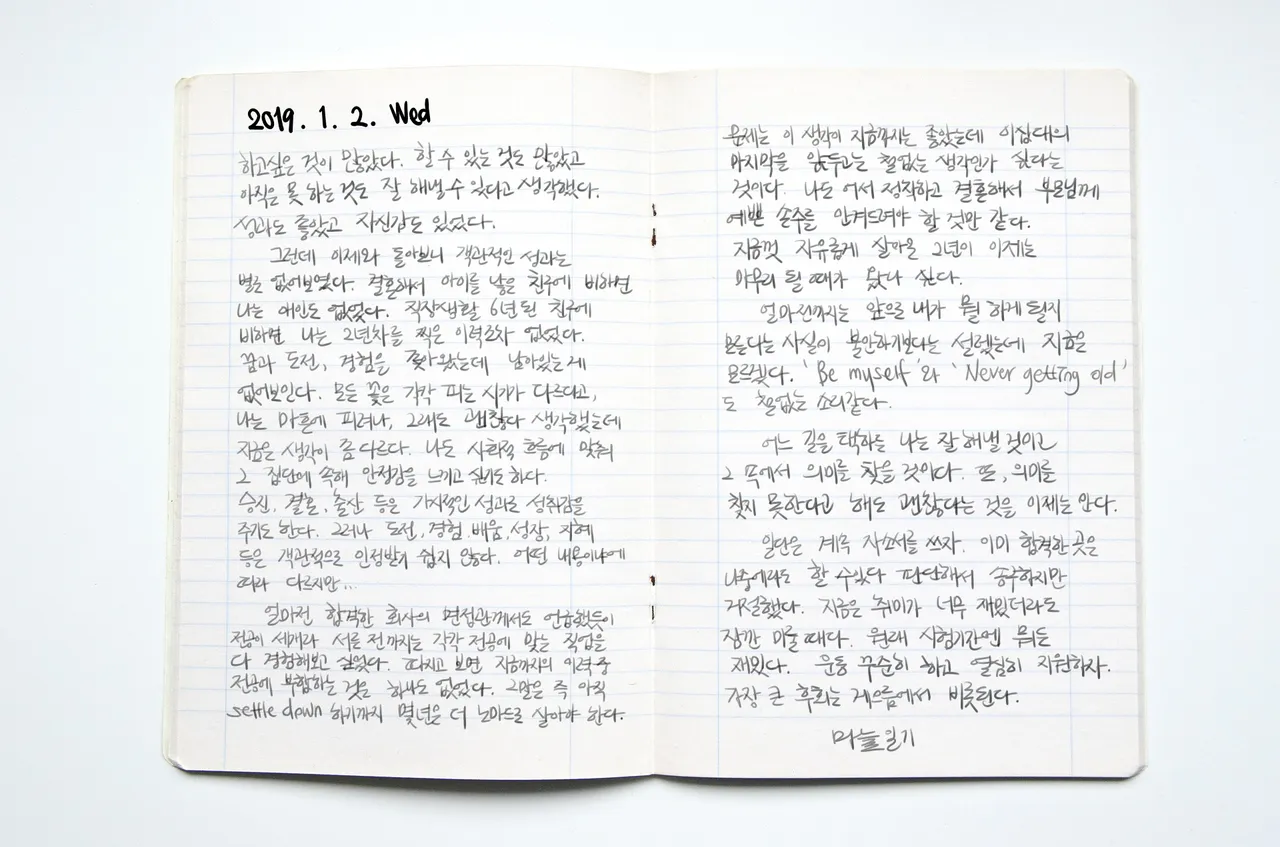 2019. 1. 2. Wed
하고싶은 것이 많았다. 할 수 있는 것도 많았고
아직은 못 하는 것도 잘 해낼 수 있다고 생각했다.
성과도 좋았고 자신감도 있었다.
그런데 이제와 돌아보니 객관적인 성과는
별로 없어보였다. 결혼해서 아이를 낳은 친구에 비하면
나는 애인도 없었다. 직장생활 6년 된 친구에
비하면 나는 2년차를 찍은 이력조차 없었다.
꿈과 도전, 경험을 쫓아왔는데 남아있는게
없어보인다. 모든 꽃은 각각 피는 시기가 다르다고,
나는 마흔에 피려나, 그래도 괜찮다 생각했는데
지금은 생각이 좀 다르다. 나도 사회적 흐름에 맞춰
그 집단에 속해 안정감을 느끼고 싶기도 하다.
승진, 결혼, 출산 등은 가시적인 성과로 성취감을
주기도 한다. 그러나 도전, 경험, 배움, 성장, 지혜
등은 객관적으로 인정받기 쉽지 않다. 어떤 내용이냐에
따라 다르지만...
얼마전 합격한 회사의 면접관께서도 언급했듯이
전공이 세개라 서른 전까지는 각각 전공에 맞는 직업을
다 경험해보고 싶었다. 따지고 보면 지금까지의 이력 중
전공에 부합하는 것은 하나도 없었다. 그말은 즉 아직
settle down 하기까지 몇년은 더 노마드로 살아야 한다.
문제는 이 생각이 지금까지는 좋았는데 이십대의
마지막을 앞두고는 철없는 생각인가 싶다는
것이다. 나도 어서 정착하고 결혼해서 부모님께
예쁜 손주를 안겨드려야 할 것만 같다.
지금껏 자유롭게 살아온 2년이 이제는
마무리 될 때가 왔다 싶다.
얼마전까지는 앞으로 내가 뭘 하게 될지
모른다는 사실이 불안하기보다는 설렜는데 지금은
모르겠다. 'Be myself'와 'Never getting old'
도 철없는 소리같다.
어느 길을 택하든 나는 잘 해낼 것이고
그 속에서 의미를 찾을 것이다. 또, 의미를
찾지 못한다고 해도 괜찮다는 것을 이제는 안다.
일단은 계속 자소서를 쓰자. 이미 합격한 곳은
나중에라도 할 수있다 판단해서 송구하지만
거절했다. 지금은 취미가 너무 재밌더라도
잠깐 미룰 때다. 원래 시험기간엔 뭐든
재밌다. 운동 꾸준히 하고 열심히 지원하자.
가장 큰 후회는 게으름에서 비롯된다.
마늘일기